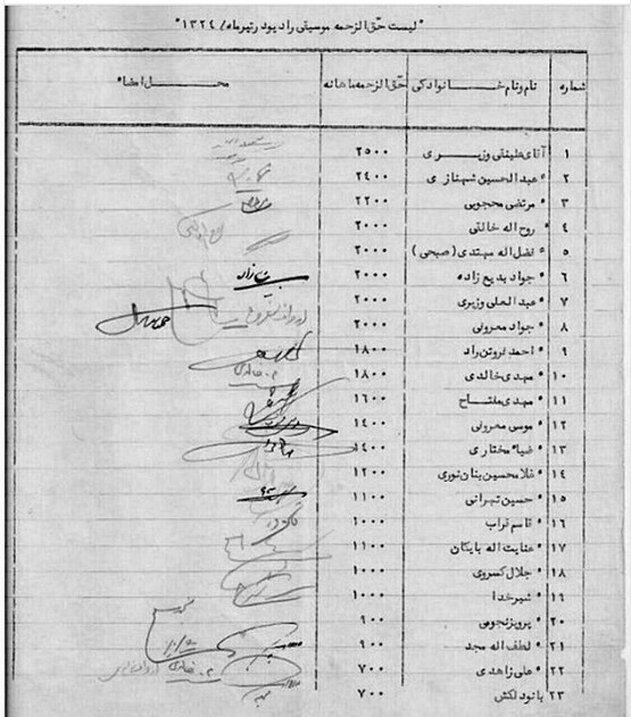 "لیست حق الزحمه موسیقی رادیو در تیرماه / ۱۳۲۴"
شماره نام و نام خانوادگی حق الزحمه ماهانه محل امضاء
۱ آقای علینقی وزیری ۲۵۰۰
۲ " عبدالحسین شهنازی ۲۴۰۰
۳ " مرتضی محجوبی ۲۲۰۰
۴ " روح اله خالقی ۲۰۰۰
۵ " فضل اله مهتدی (صبحی) ۲۰۰۰
۶ " جواد بدیع زاده ۲۰۰۰
۷ " عبدالعلی وزیری ۲۰۰۰
۸ " جواد معروفی ۲۰۰۰
۹ " احمد فروتن راد ۱۸۰۰
۱۰ " مهدی خالدی ۱۸۰۰
۱۱ " مهدی مفتاح ۱۶۰۰
۱۲ " موسی معروفی ۱۴۰۰
۱۳ " ضیاء مختاری ۱۴۰۰
۱۴ " غلامحسین بنان نوری ۱۲۰۰
۱۵ " حسین تهرانی ۱۱۰۰
۱۶ " قاسم نراب ۱۰۰۰
۱۷ " عنایت اله بایکان ۱۱۰۰
۱۸ " جلال کسروی ۱۰۰۰
۱۹ " شیرخدا ۱۰۰۰
۲۰ " پرویز نجومی ۹۰۰
۲۱ " لطف اله مجد ۹۰۰
۲۲ " علی زاهدی ۷۰۰
۲۳ بانو دلکش ۷۰۰